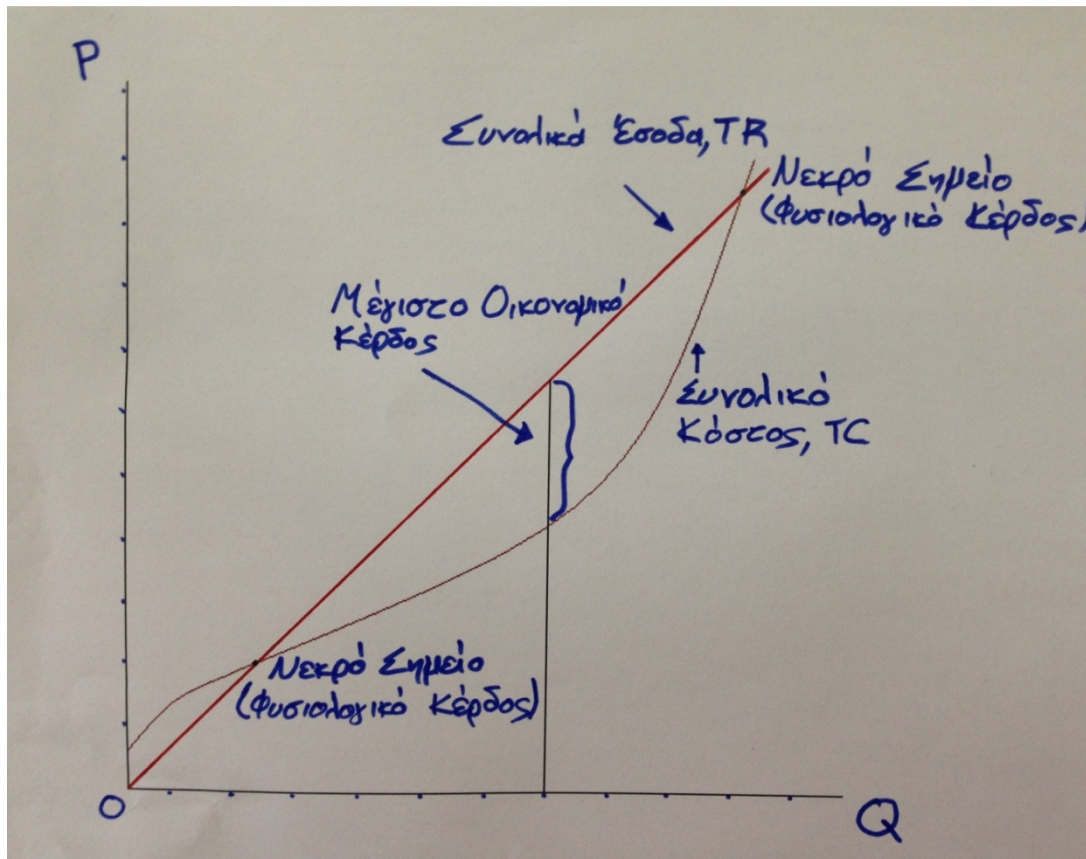 P
Συνολικά Έσοδα, TR
Νεκρό Σημείο
(Φυσιολογικό Κέρδος)
Μέγιστο Οικονομικό
Κέρδος
Συνολικό
Κόστος, TC
Νεκρό Σημείο
(Φυσιολογικό Κέρδος)
O
Q